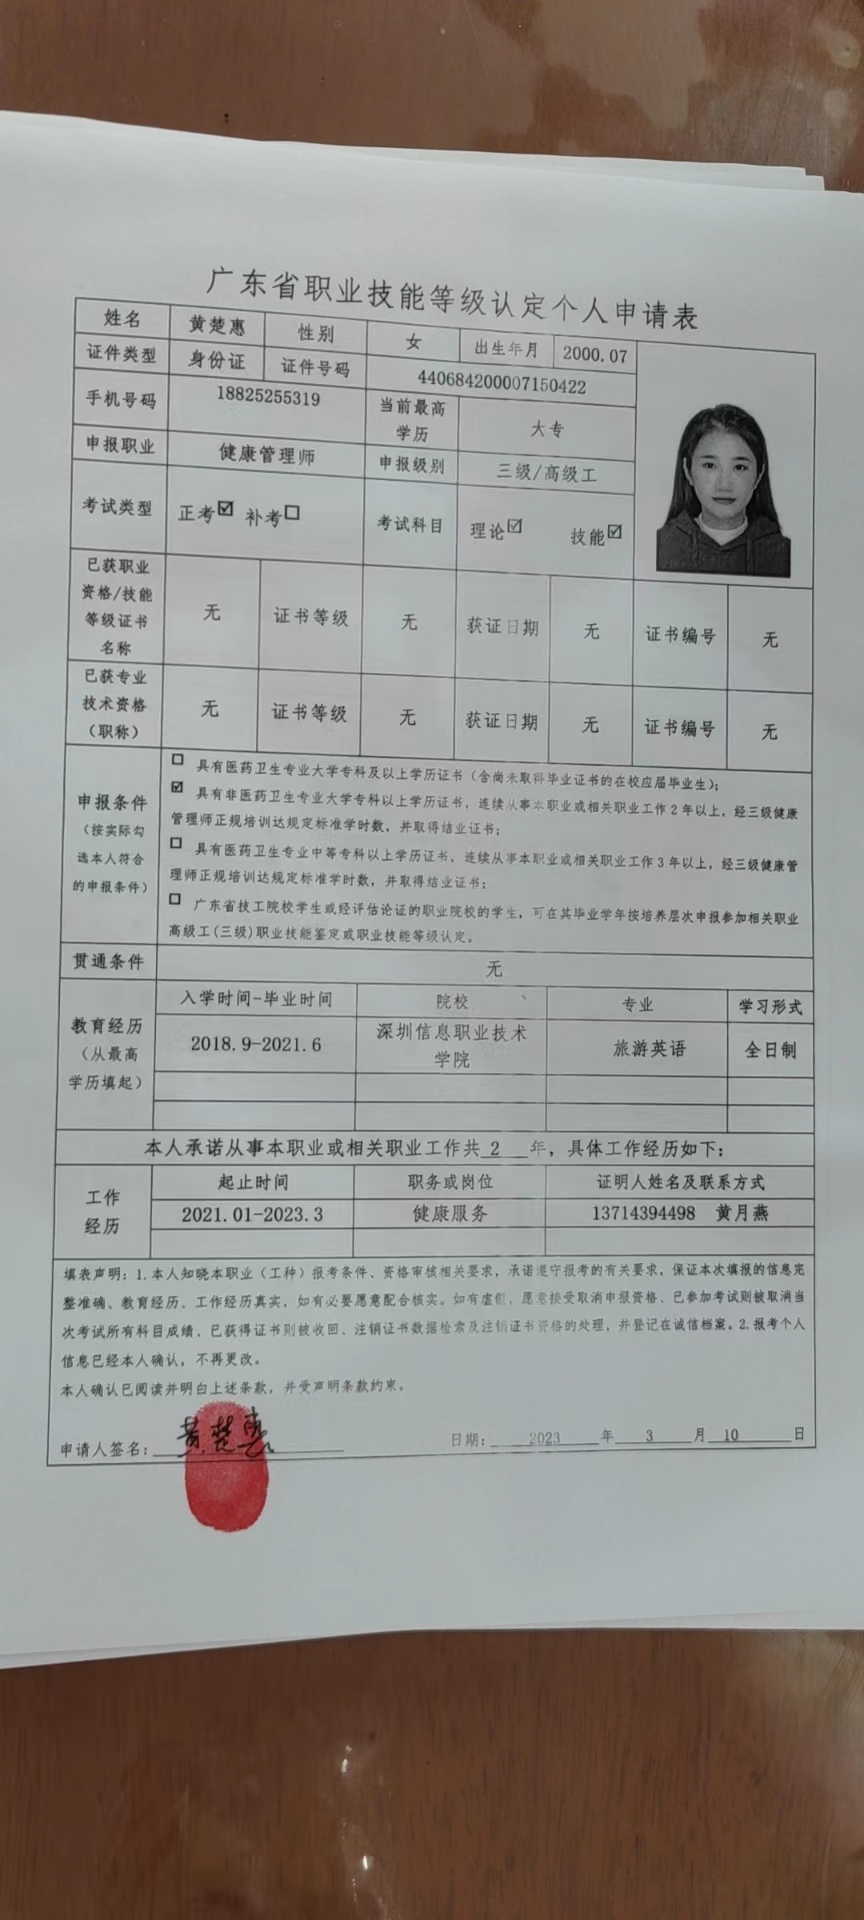 广东省职业技能等级认定个人申请表
姓名 黄楚惠 性别 女 出生年月 2000.07
证件类型 身份证 证件号码 440684200007150422
手机号码 18825255319 当前最高学历 大专
申报职业 健康管理师 申报级别 三级/高级工
考试类型 正考☑ 补考☐ 考试科目 理论☑ 技能☑
已获职业资格/技能等级证书名称 无 证书等级 无 获证日期 无 证书编号 无
已获专业技术资格（职称） 无 证书等级 无 获证日期 无 证书编号 无
申报条件（按实际勾选本人符合的申报条件）
☐ 具有医药卫生专业大学专科及以上学历证书（含尚未取得毕业证书的在校应届毕业生）；
☑ 具有非医药卫生专业大学专科以上学历证书，连续从事本职业或相关职业工作2年以上，经三级健康
管理师正规培训达规定标准学时数，并取得结业证书；
☐ 具有医药卫生专业中等专科以上学历证书，连续从事本职业或相关职业工作3年以上，经三级健康管
理师正规培训达规定标准学时数，并取得结业证书；
☐ 广东省技工院校学生或经评估论证的职业院校的学生，可在其毕业学年按培养层次申报参加相关职业
高级工(三级)职业技能鉴定或职业技能等级认定。
贯通条件 无
教育经历（从最高学历填起） 入学时间-毕业时间 院校 专业 学习形式
2018.9-2021.6 深圳信息职业技术学院 旅游英语 全日制
本人承诺从事本职业或相关职业工作共 2 年，具体工作经历如下：
工作经历 起止时间 职务或岗位 证明人姓名及联系方式
2021.01-2023.3 健康服务 13714394498 黄月燕
填表声明：1.本人知晓本职业（工种）报考条件、资格审核相关要求，承诺遵守报考的有关要求，保证本次填报的信息完
整准确、教育经历、工作经历真实，如有必要愿意配合核实。如有虚假，愿意接受取消申报资格、已参加考试则被取消当
次考试所有科目成绩、已获得证书则被收回、注销证书数据检索及注销证书资格的处理，并登记在诚信档案。2.报考个人
信息已经本人确认，不再更改。
本人确认已阅读并明白上述条款，并受声明条款约束。
申请人签名： 黄楚惠 日期： 2023 年 3 月 10 日